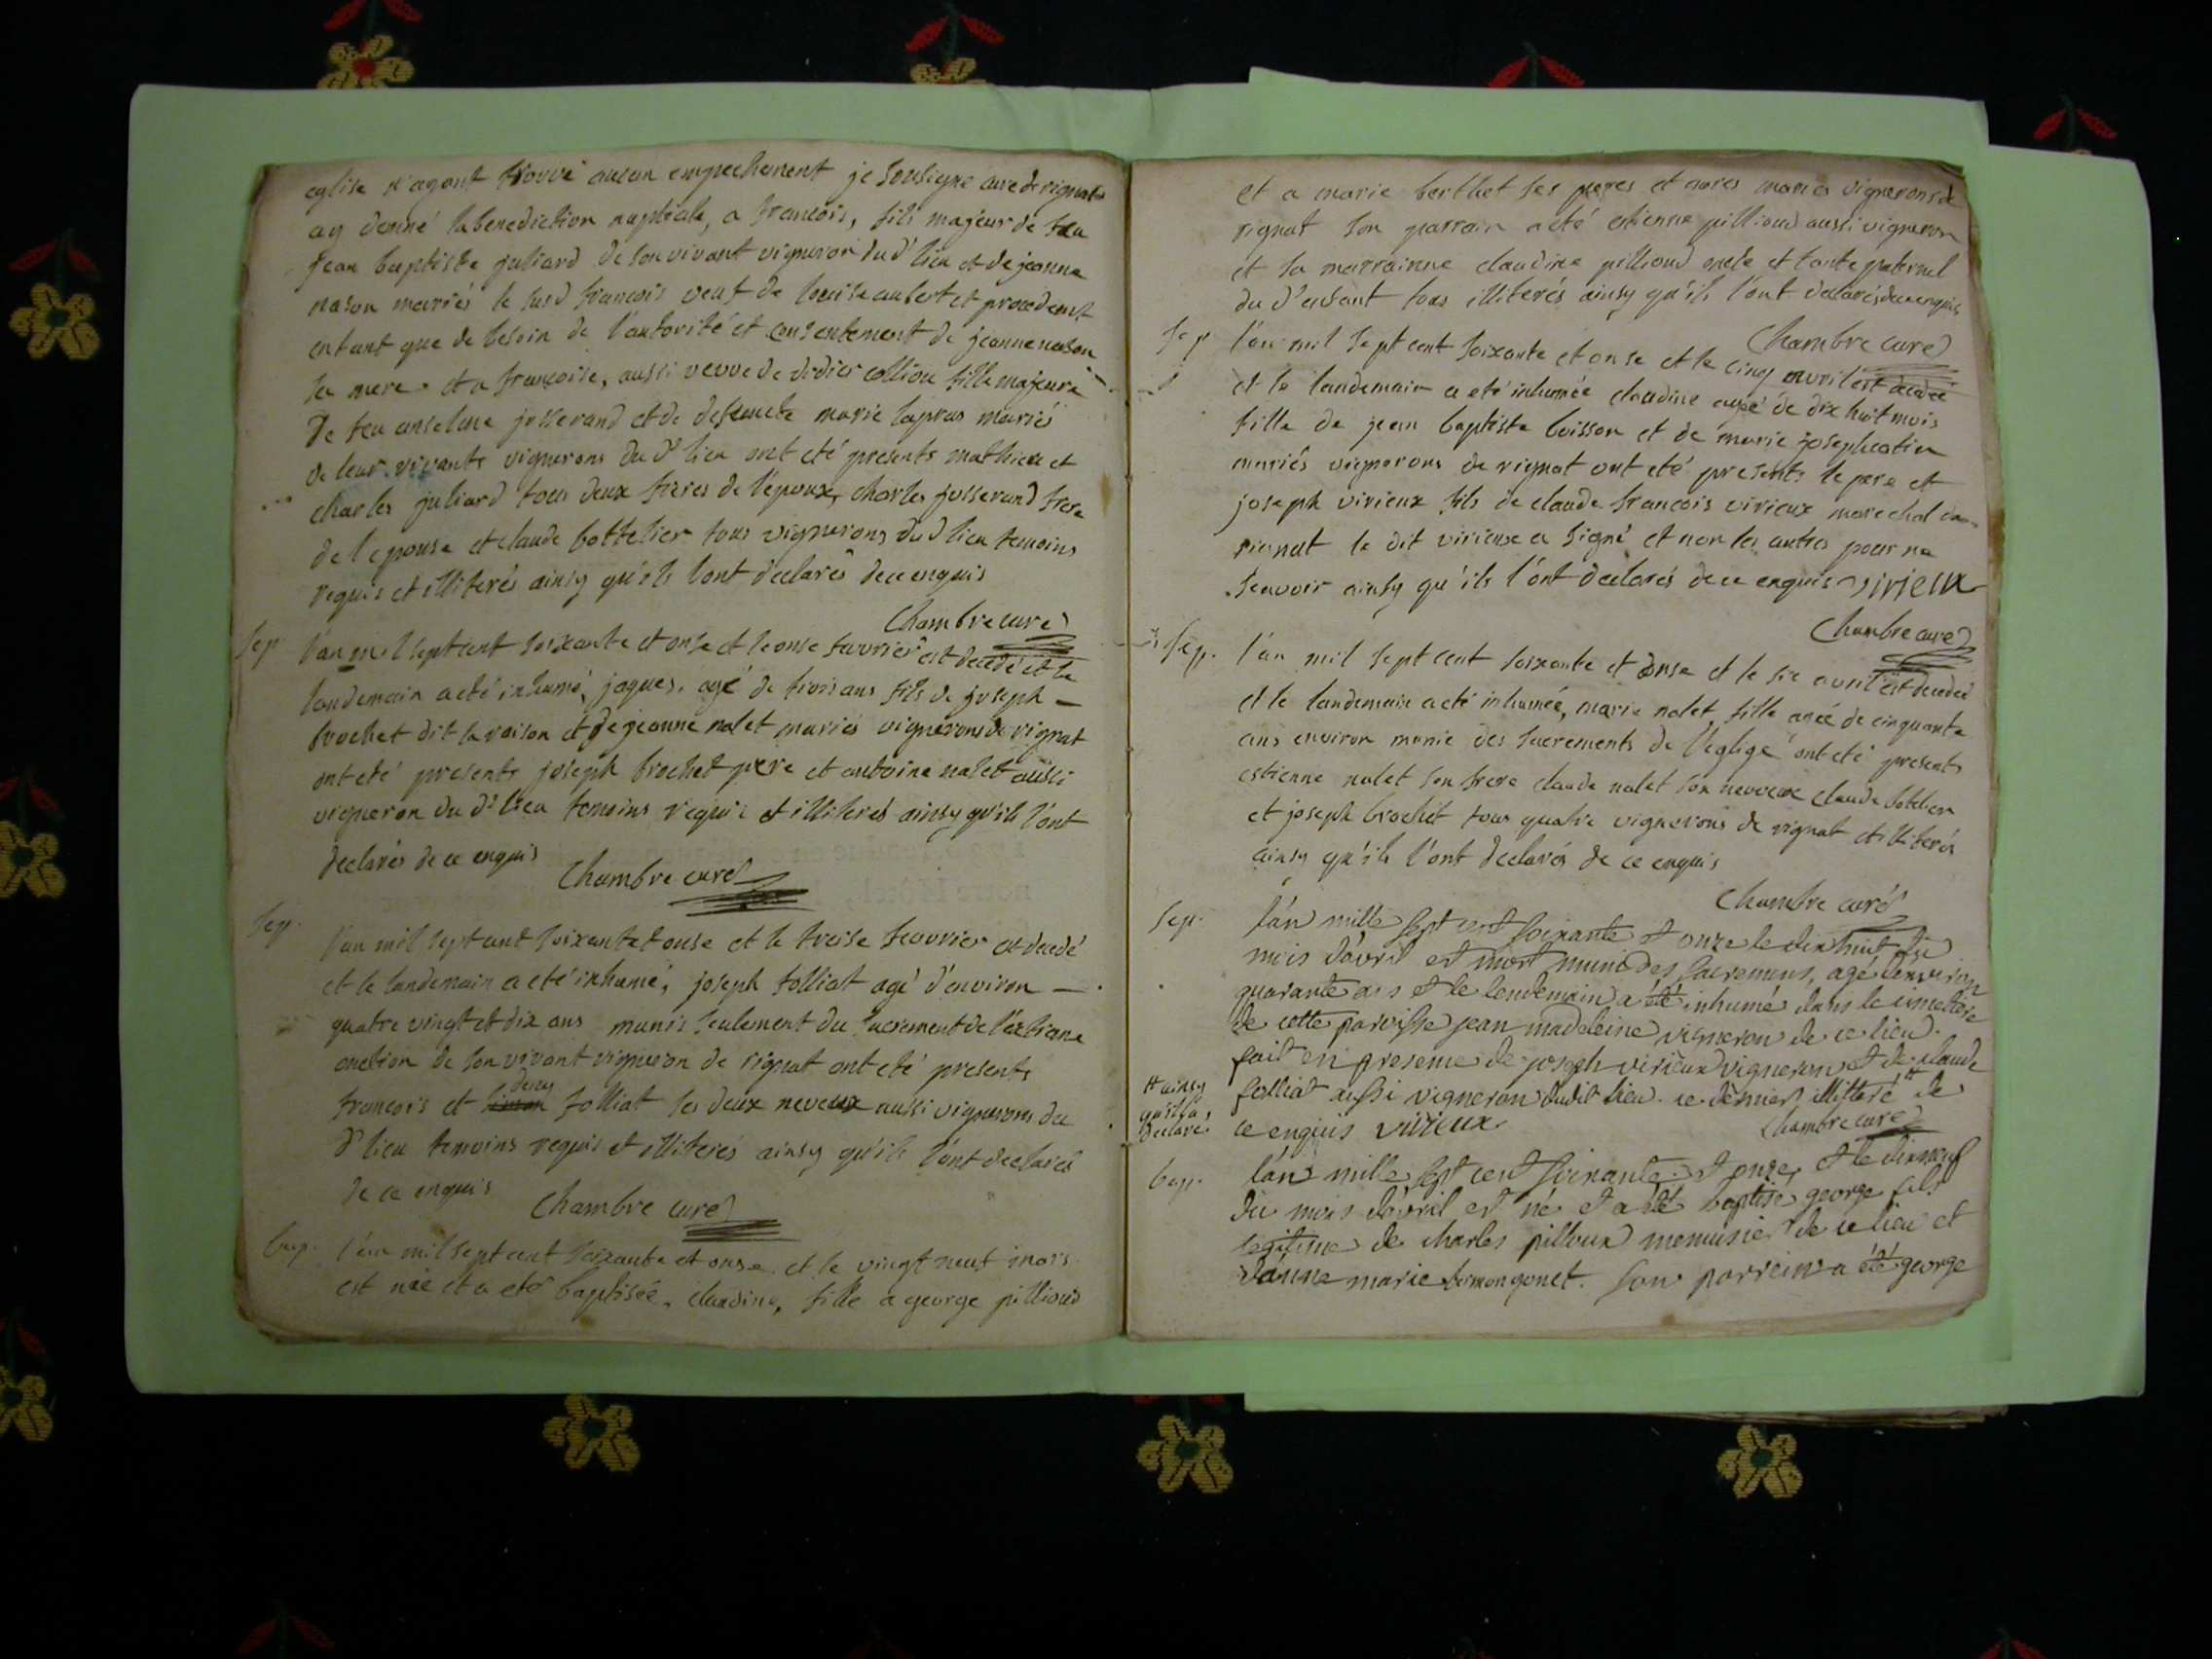 eglise n'ayant trouvé aucun empechement je soussigne curé de rignat
ay donné la benediction nuptiale, a francois, fils majeur de feu
jean baptiste juliard de son vivant vigneron du d' lieu et de jeanne
nason mariés le susd francois veuf de louise aubert et procedant
entant que de besoin de l'autorité et consentement de jeanne nason
sa mere et a francoise, aussi veuve de didier collion fille majeure
de feu anselme josserand et de defuncte marie lapras mariés
de leur vivants vignerons du d' lieu ont eté presents mathieu et
charles juliard tous deux freres de l'epoux, charles josserand frere
de l'epouse et claude bottelier tous vignerons dud lieu temoins
requis et illiterés ainsy qu'ils l'ont declarés de ce enquis
Chambre curé
sep l'an mil sept cent soixante et onse et le onse feuvrier est decedé et le
landemain a eté inhumé, jaques, agé de trois ans fils de joseph
brochet dit la raison et de jeanne nalet mariés vignerons de rignat
ont eté presents joseph brochet pere et antoine nalet aussi
vigneron du d' lieu temoins requis et illiterés ainsy qu'ils l'ont
declarés de ce enquis
Chambre curé
sep. l'an mil sept cent soixante et onse et le treise feuvrier est decedé
et le landemain a eté inhumé, joseph folliat agé d'environ
quatre vingt et dix ans munis seulement du sacrement de l'extreme
onction de son vivant vigneron de rignat ont eté presents
deny
francois et simon folliat ses deux neveux aussi vignerons du
d' lieu temoins requis et illiterés ainsy qu'ils l'ont declarés
de ce enquis
Chambre curé
bap. l'an mil sept cent soixante et onse et le vingt neuf mars
est née et a eté baptisée, claudine, fille a george pillioud
et a marie berthet ses peres et meres mariés vignerons de
rignat son parrain a eté etienne pillioud aussi vigneron
et sa marrainne claudine pillioud oncle et tante paternel
du d'enfant tous illiterés ainsy qu'ils l'ont declarés de ce enquis
Chambre curé
sep l'an mil sept cent soixante et onse et le cinq avril est decedée
et le landemain a eté inhumée claudine agée de dix huit mois
fille de jean baptiste buisson et de marie joseph
mariés vignerons de rignat ont eté presents le pere et
joseph virieux fils de claude francois virieux marechal
rignat le dit virieux a signé et non les autres pour ne
scavoir ainsy qu'ils l'ont declarés de ce enquis virieux
Chambre curé
sep. l'an mil sept cent soixante et onse et le six avril est decedée
et le landemain a eté inhumée, marie nalet fille agée de cinquante
ans environ munie des sacrements de l'eglise ont eté presents
estienne nalet son frere claude nalet son neuveux claude botelier
et joseph brochet tous quatre vignerons de rignat et illiterés
ainsy qu'ils l'ont declarés de ce enquis
Chambre curé
sep. l'an mille sept cent soixante et onze le dix huit du
mois d'avril est mort muni des sacremens, agé d'environ
quarante ans et le lendemain a été inhumé dans le cimetiere
de cette paroisse jean madeleine vigneron de ce lieu.
fait en presence de joseph virieux vigneron et de claude
folliat aussi vigneron dudit lieu. ce dernier illitteré # de
# ainsy
qu'il l'a
declaré
ce enquis virieux
Chambre curé
bap. l'an mille sept cent soixante et onze, et le dix neuf
du mois d'avril est né et a été baptisé george fils
legitime de charles pilloux menuisier de ce lieu et
d'anne marie bomongonet. son parrein a été george